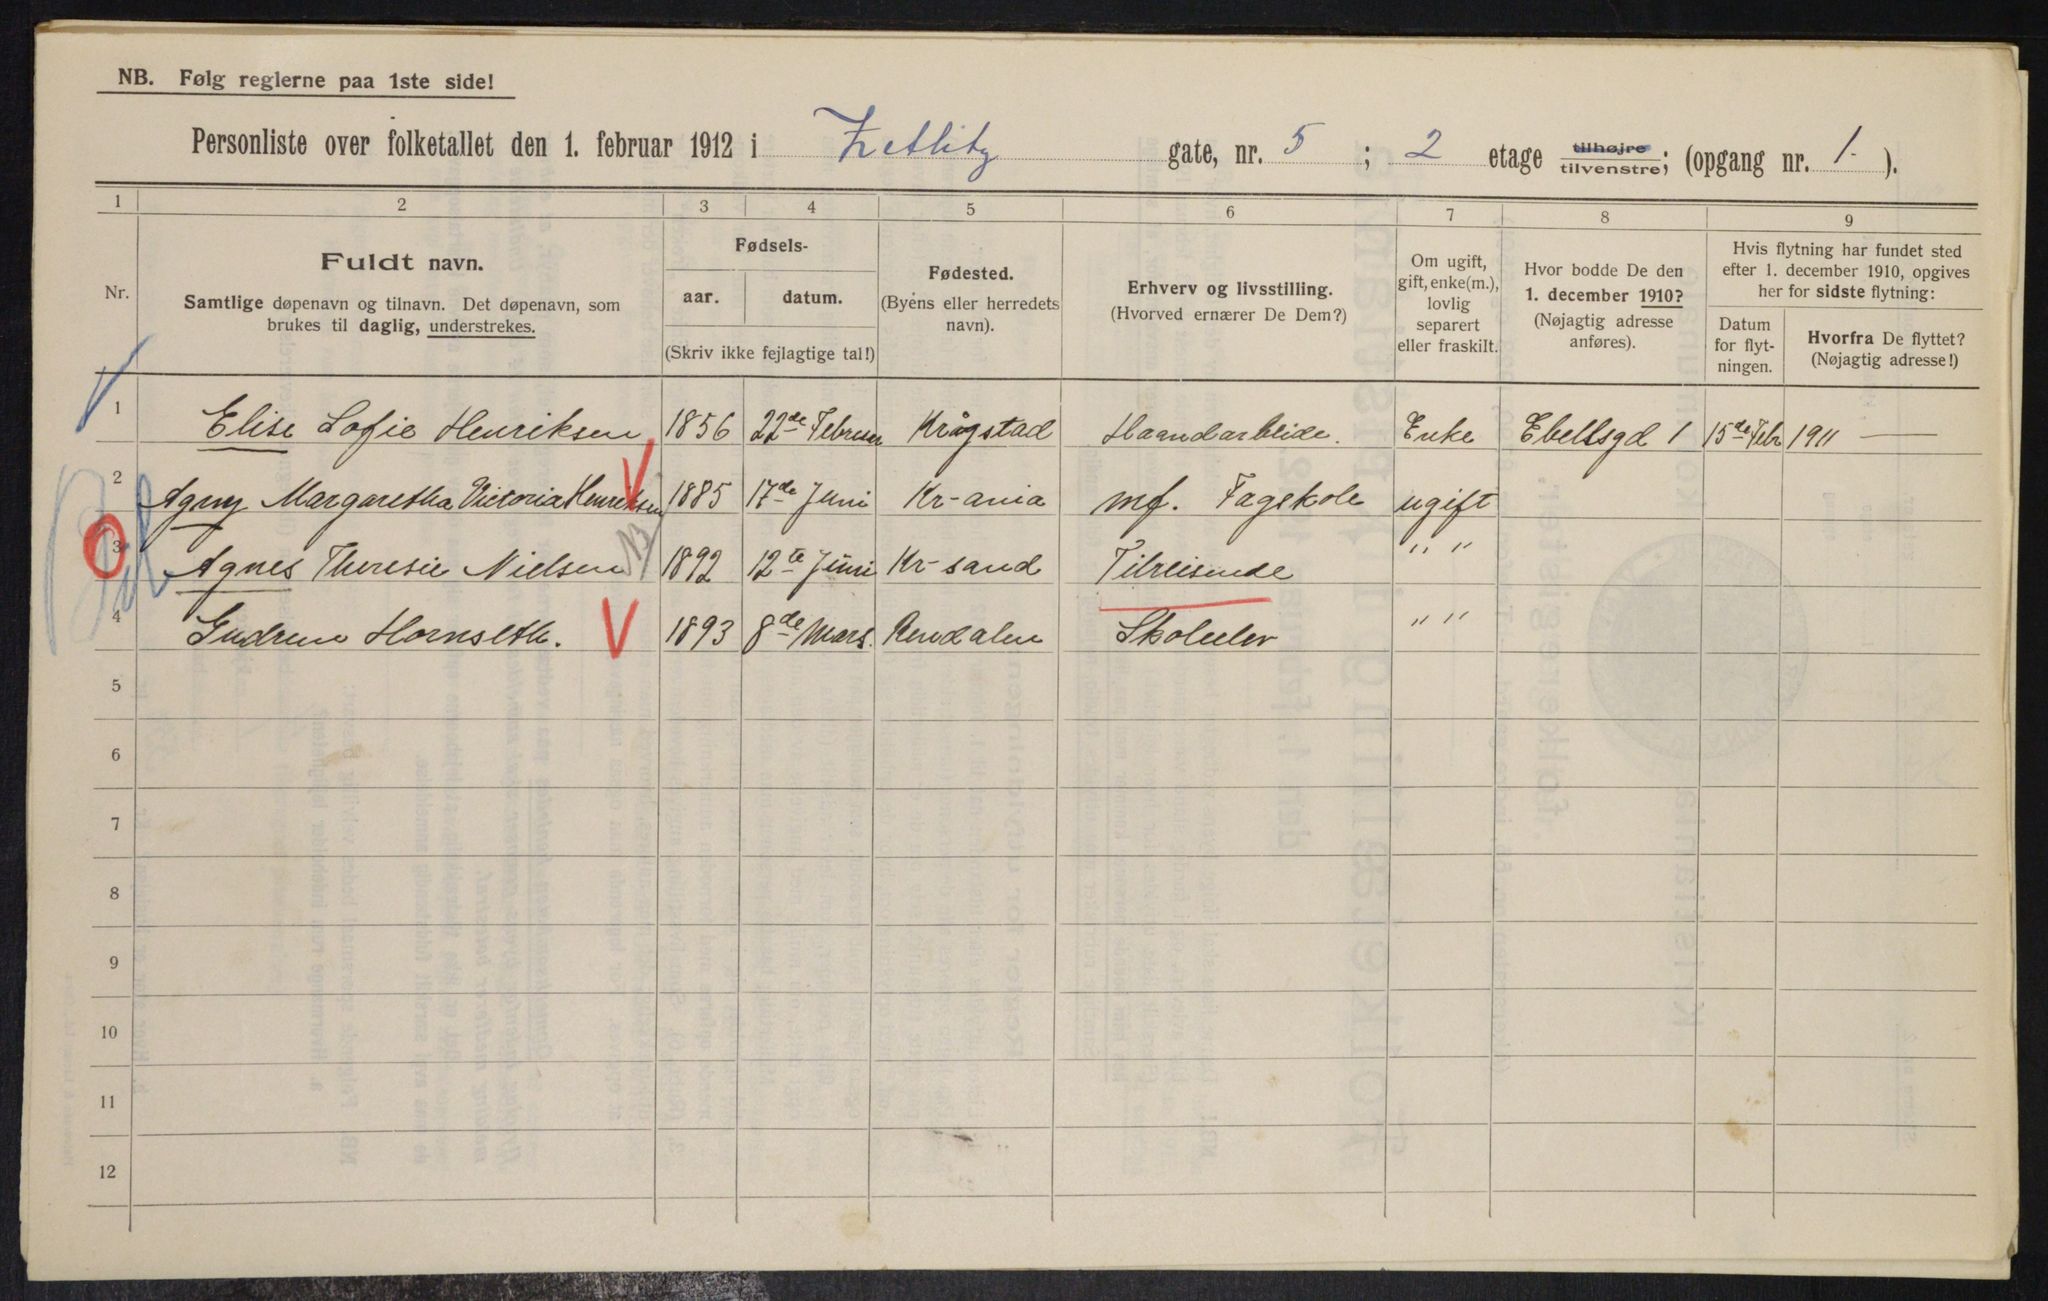 NB. Følg reglerne paa 1ste side!
Personliste over folketallet den 1. februar 1912 i Zetlitz gate, nr. 5 ; 2 etage tilhøjre tilvenstre; (opgang nr. 1. ).
1 2 3 4 5 6 7 8 9
Nr.
Fuldt navn.
Samtlige døpenavn og tilnavn. Det døpenavn, som
brukes til daglig, understrekes.
Fødsels-
aar. datum.
(Skriv ikke fejlagtige tal!)
Fødested.
(Byens eller herredets
navn).
Erhverv og livsstilling.
(Hvorved ernærer De Dem?)
Om ugift,
gift, enke(m.),
lovlig
separert
eller fraskilt.
Hvor bodde De den
1. december 1910?
(Nøjagtig adresse
anføres).
Hvis flytning har fundet sted
efter 1. december 1910, opgives
her for sidste flytning:
Datum
for flyt-
ningen.
Hvorfra De flyttet?
(Nøjagtig adresse!)
1 Elise Sofie Henriksen 1856 22de Februar Krågstad Haandarbeide. Enke Ebellsgd 1 15de Febr 1911 —
2 Agny Margaretha Victoria Henriksen 1885 17de Juni Kr-ania mf. Fagskole ugift
3 Agnes Theresie Nielsen 1892 12te Juni Kr-sand Tilreisende " "
4 Gudrun Hornseth. 1893 8de Mars. Rendalen Skoleelev " "
5
6
7
8
9
10
11
12